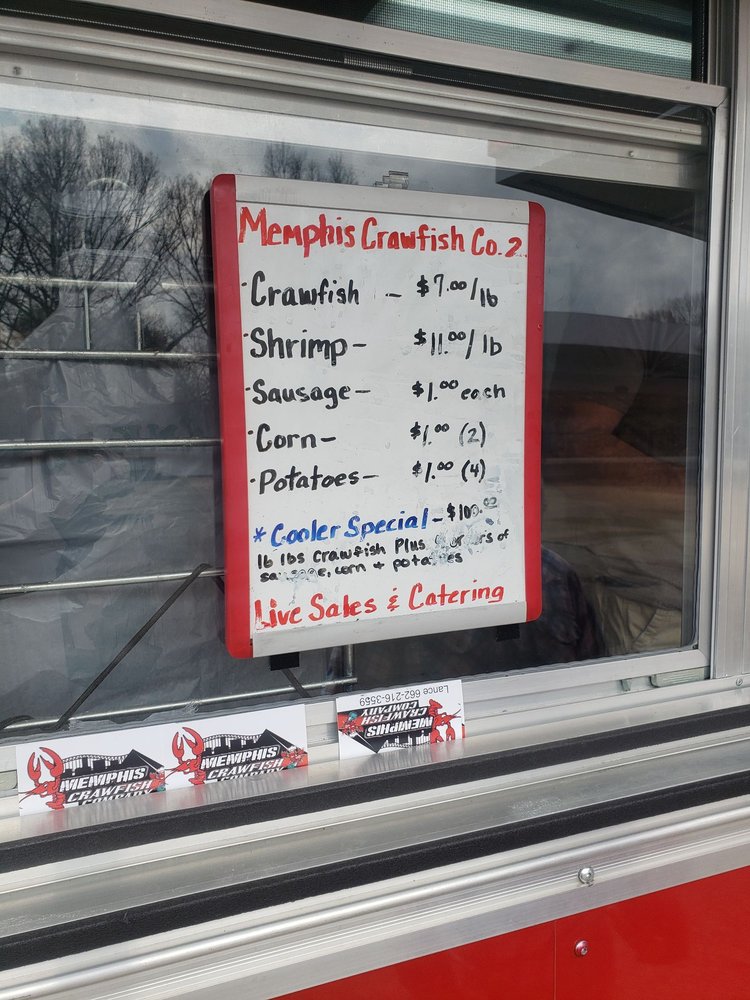 Memphis Crawfish Co. 2
· Crawfish – $7.00/lb
· Shrimp – $11.00/lb
· Sausage – $1.00 each
· Corn – $1.00 (2)
· Potatoes – $1.00 (4)
* Cooler Special – $100.
16 lbs crawfish Plus of
corn +
Live Sales & Catering
Lance 662-216-3559
MEMPHIS
CRAWFISH
COMPANY
MEMPHIS
CRAWFISH
COMPANY
MEMPHIS
CRAWFISH
COMPANY